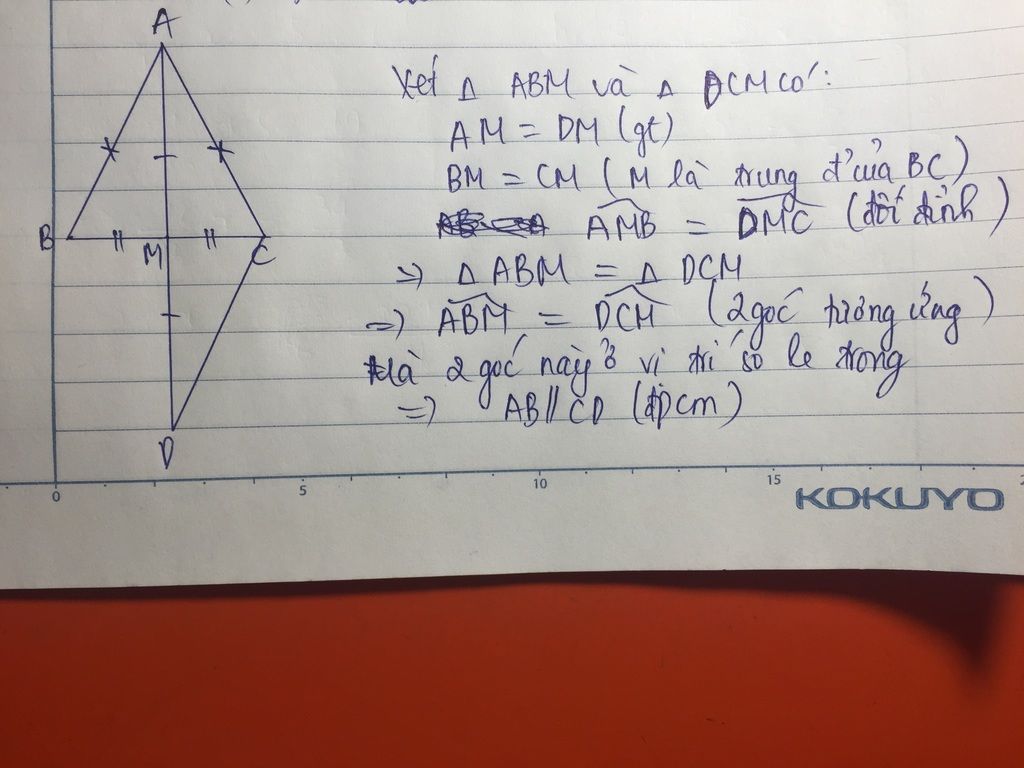 A
B
M
C
D
Xét Δ ABM và Δ DCM có:
AM = DM (gt)
BM = CM (M là trung đ' của BC)
AMB = DMC (đối đỉnh)
=> Δ ABM = Δ DCM
=> ABM = DCM (2 góc tương ứng)
Mà 2 góc này ở vị trí so le trong
=> AB // CD (đpcm)
0 5 10 15
KOKUYO